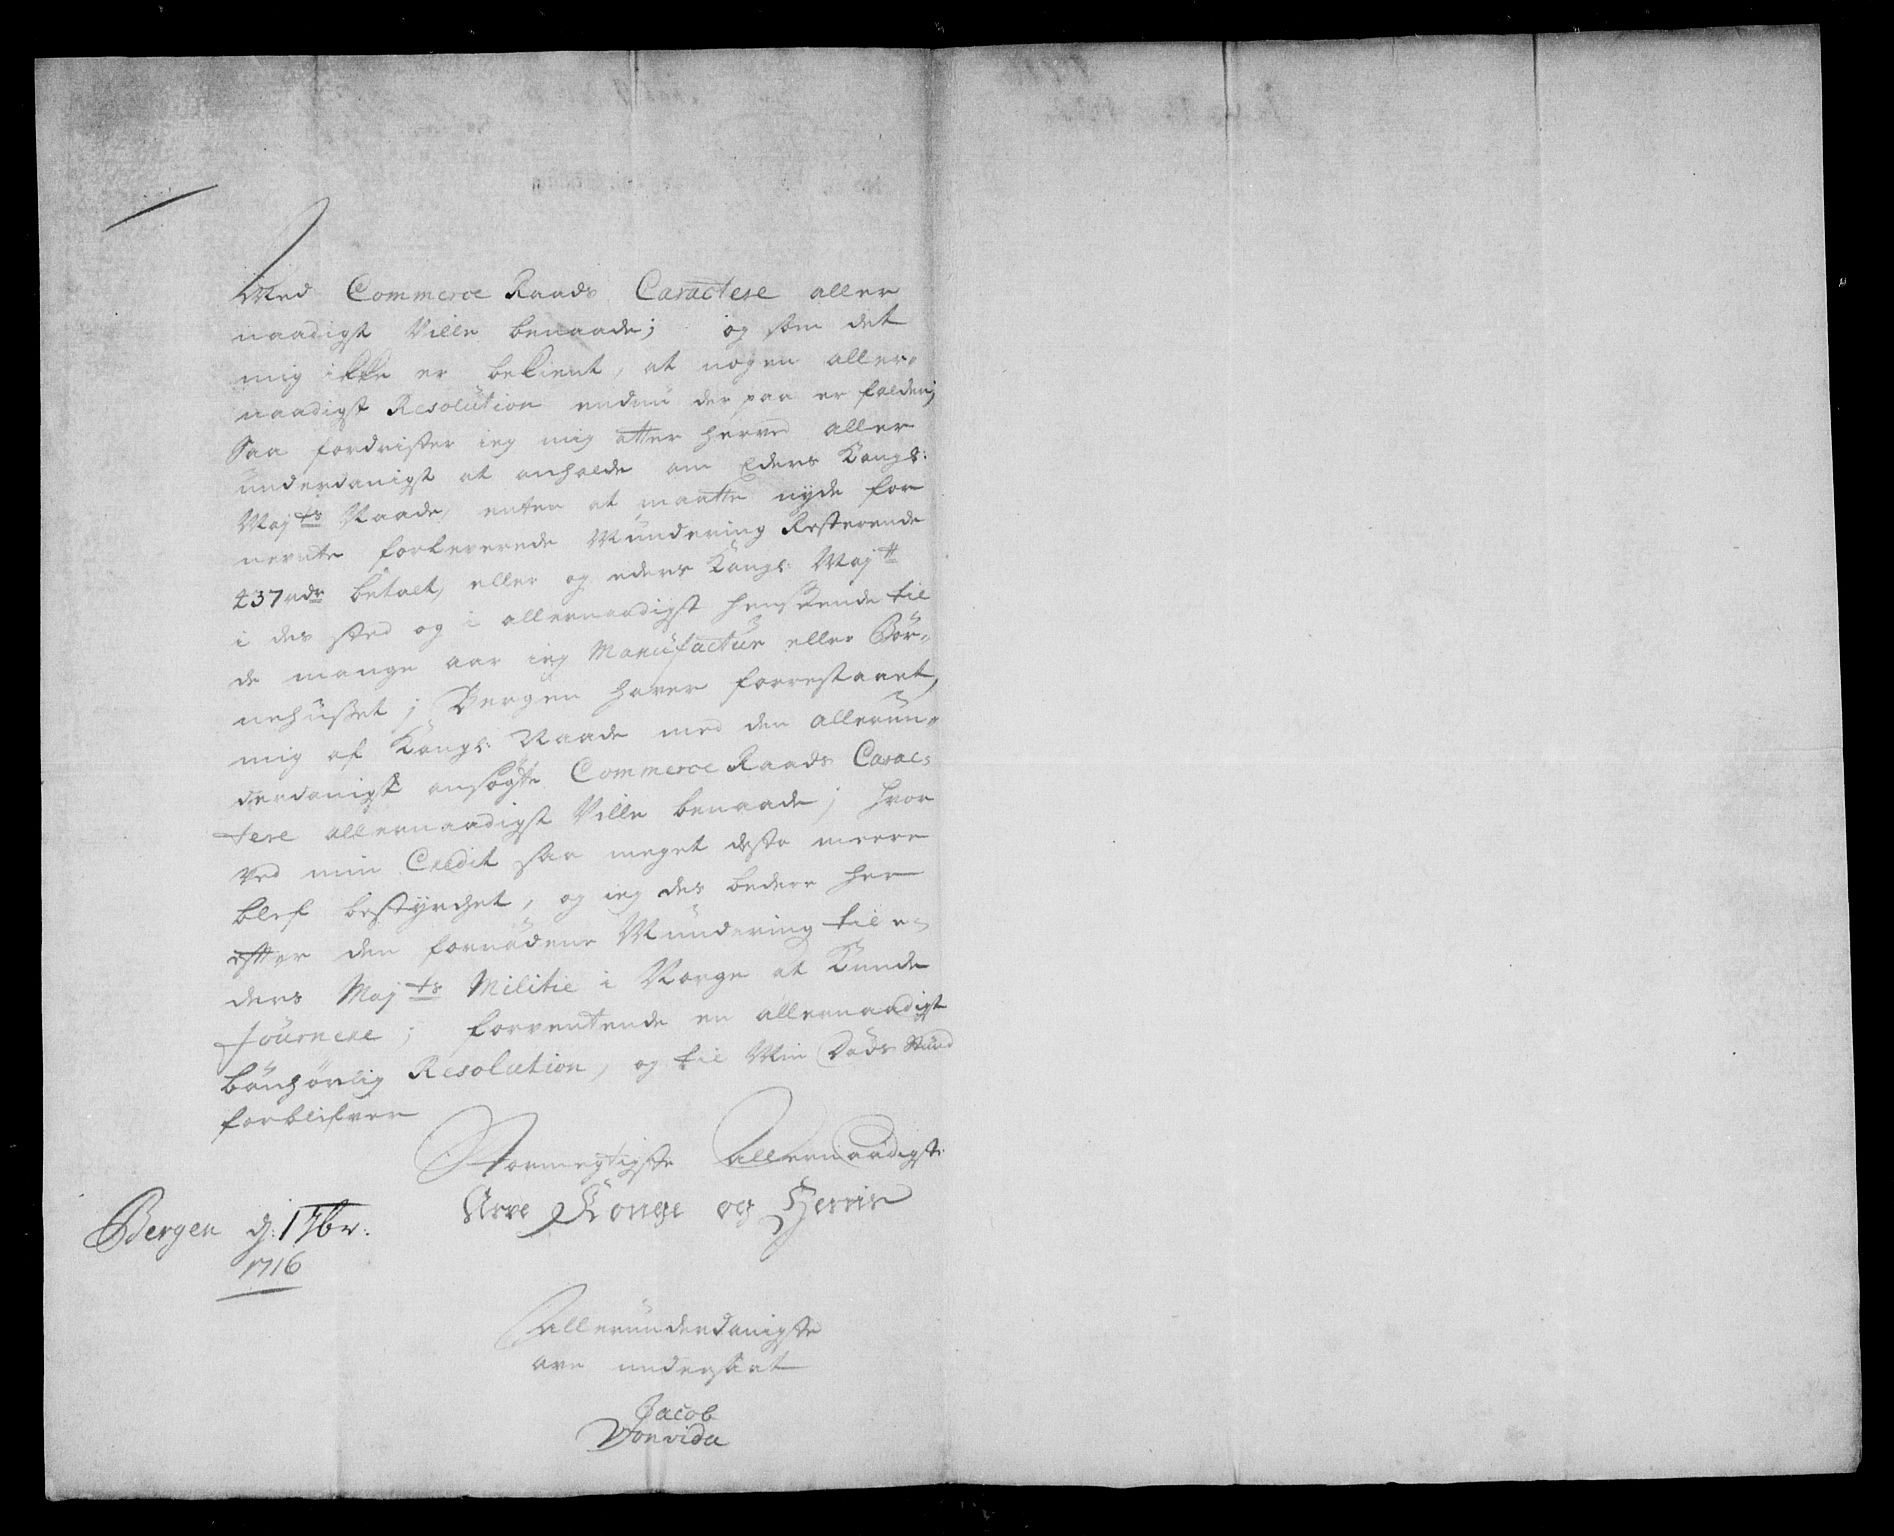 Med Commerce Raads Caractere aller
naadigst Ville benaade; og som det
mig ikke er bekient, at nogen aller-
naadigst Resolution endnu der paa er falden;
Saa fordrister ieg mig atter herved aller
underdanigst at anholde om Eders Kongl:
Majts Naade, enten at maatte nyde for
nevnte forleverede Mundering Resterende
437 rdr betalt, eller og eders Kongl: Majtt
i des sted og i allernaadigst henseende til
de mange aar ieg Manufactur eller Bör-
nehuset i Bergen haver forrestaaet,
mig af Kongl: Naade med den allerun-
derdanigst ansøgte Commerce Raads Carac-
tere allernaadigst Ville benaade; hvor
ved min Credit saa meget deste meere
blef bestyrchet, og ieg des bedere her
effter den fornødene Mundering til e-
ders Majts Militie i Norge at Kunde
fournere; forventende en allernaadigst
bönhörlig Resolution, og til Min Döds Stund
forblifver
Stormegtigste Allernaadigste
Arve Konge og Herris
Bergen d: 1 7br:
1716
Allerunderdanigste
arve undersaat
Jacob